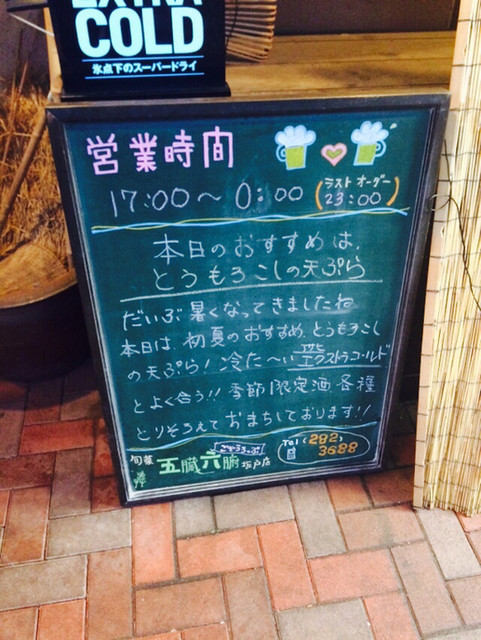 EXTRA
COLD
氷点下のスーパードライ
営業時間
17:00〜0:00 (ラストオーダー 23:00)
本日のおすすめは、
とうもろこしの天ぷら
だいぶ暑くなってきましたね
本日は初夏のおすすめ、とうもろこし
の天ぷら！冷た〜いアサヒエクストラコールド
とよく合う!! 季節限定酒各種
とりそろえておまちしております!!
旬菜 五臓六腑 坂戸店
ごぞうろっぷ
Tel (282) 3688